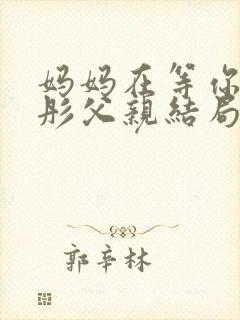 妈妈在等你
彤父親结局
郭辛林